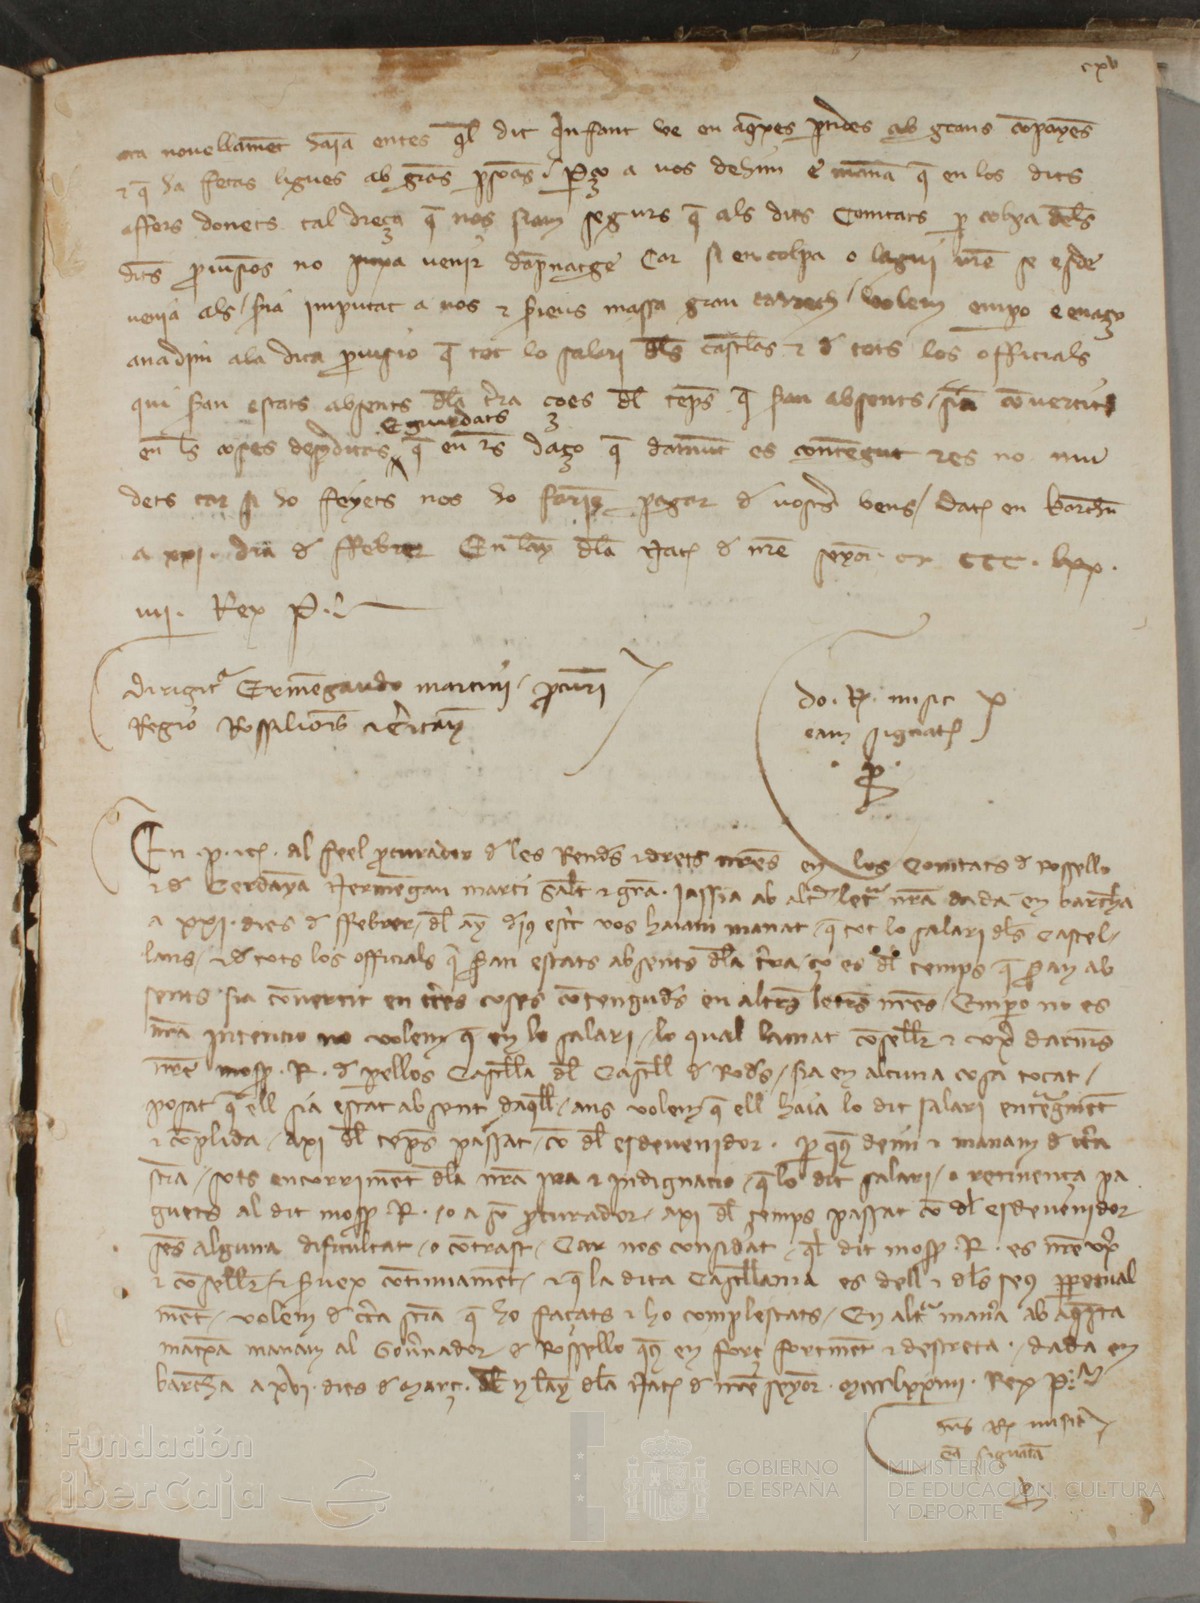 cxv
ara novellament haia entes quel dit Infant ve en aquexes partides ab grans companyes
e que ha fetas ligues ab grans persones perço a vos dehim e manam que en los dits
affers donets tal dreça que nos siam segurs que als dits Comtats per colpa dels
dits no puxa venir dampnatge Car si en colpa o lagui vostre se esde
venia als seria imputat a vos e serieus massa greu carrech volem empo e enaço
anadim ala dita provisio que tot lo salari dels castlas e de tots los officials
qui seran estats absents dela terra çoes del temps que seran absents sia convertit
en les coses desusdites que en res daço que damunt es contengut res no mu
Eguardats
dets car si ho feyets nos ho fariem pagar de vostres bens Dat en barchna
a xxi dia de ffebrer En lany dela Nat de nostre senyor M CCC lxx
iiii Rex P
dirigitur Ermengaudo martini procuratori
Regio Rossilionis e Ceritanie
do R misit
eam signat
p
En P etc al feel procurador de les Rendes e drets nostres en los Comtats de Rossello
e de Cerdanya Nermengau marti salut e gracia Iassia ab altra letra nostra dada en barchna
a XXI dies de ffebrer del any dejus escrit vos haiam manat que tot lo salari dels Castel
lans e de tots los officials qui seran estats absents dela terra ço es del temps que seran ab
sents sia convertit en certes coses contengudes en altres letres nostres Empero no es
nostra intencio no volem que en lo salari lo qual lamat conseller e uxer darmes
nostre mossen R de perellos Castella del Castell de Rodes sia en alcuna cosa tocat
posat que ell sia estat absent daquell ans volem que ell haia lo dit salari entegrament
e complida axi del temps passat com del esdevenidor per queus deim e manam de certa
sciencia sots encorriment dela nostra ira e indignacio que lo dit salari o retinença pa
guets al dit mossen R o a son procurador axi del temps passat com del esdevenidor
sens alguna dificultat o contrast Car nos considerat quel dit mossen R es nostre uxer
e conseller e serveix continuament e que la dita Castellania es dell e dels seus perpetual
ment volem de certa sciencia que ho façats e ho complescats En altra manera ab aquesta
matexa manam al Governador de Rossello queus en forç fortment e destreta dada en
barchna a xvi dies de Març en lany dela Nat de nostre senyor Mccclxxiiii Rex P
dns R misit
eam signatam
p
Fundación
iberCaja
GOBIERNO
DE ESPAÑA
MINISTERIO
DE EDUCACIÓN, CULTURA
Y DEPORTE